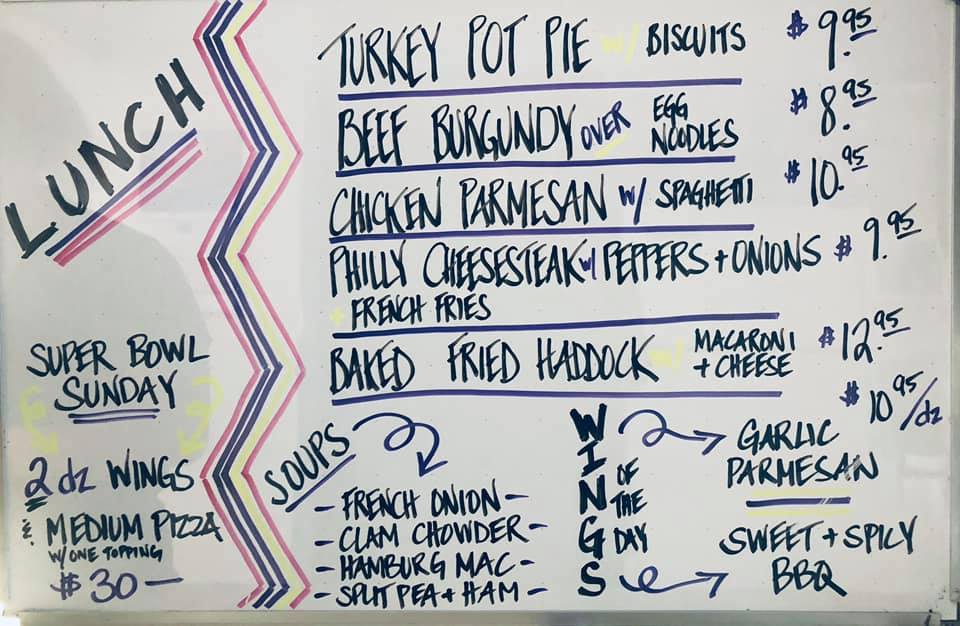 LUNCH
TURKEY POT PIE w/ BISCUITS $9.95
BEEF BURGUNDY OVER EGG NOODLES $8.95
CHICKEN PARMESAN w/ SPAGHETTI $10.95
PHILLY CHEESESTEAK w/ PEPPERS + ONIONS $9.95
+ FRENCH FRIES
BAKED FRIED HADDOCK w/ MACARONI + CHEESE $12.95
SUPER BOWL
SUNDAY
2 dz WINGS
& MEDIUM PIZZA
W/ ONE TOPPING
$30—
SOUPS
- FRENCH ONION -
- CLAM CHOWDER -
- HAMBURG MAC -
- SPLIT PEA + HAM -
WINGS OF THE DAY
$10.95/dz
GARLIC
PARMESAN
SWEET + SPICY
BBQ